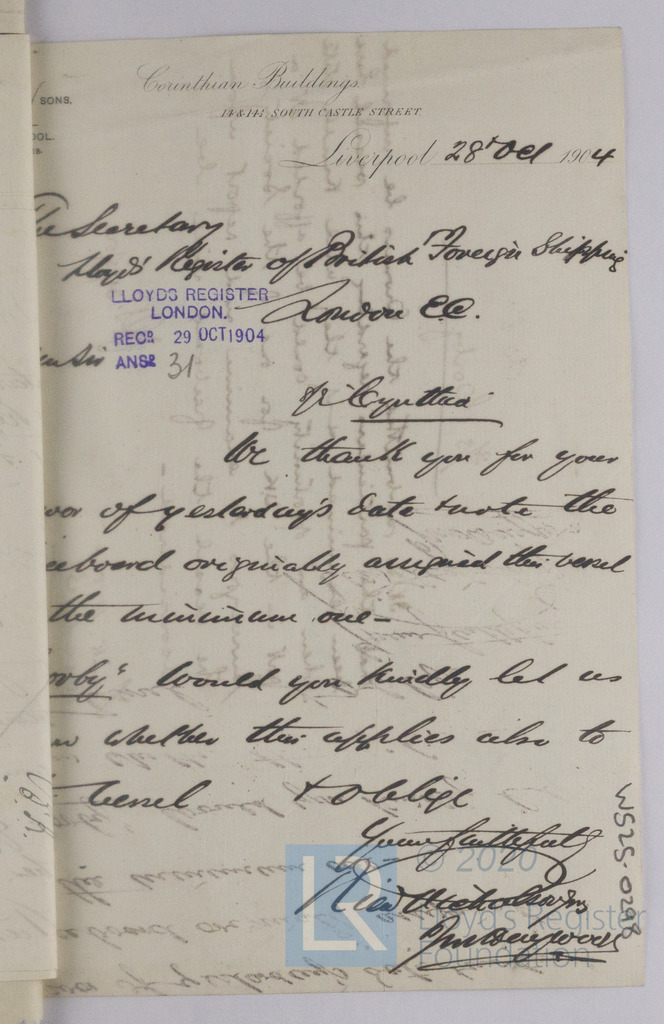 SONS.
Corinthian Buildings.
14 & 14½ SOUTH CASTLE STREET
Liverpool 28th Oct 1904
The Secretary
Lloyds' Register of British & Foreign Shipping
London E.C.
LLOYDS REGISTER
LONDON.
RECD. 29 OCT 1904
ANSD. 31
Sir
Cynthia
We thank you for your
of yesterday's date & note the
eeboard originally assigned this vessel
the minimum one –
orby" Would you kindly let us
whether this applies also to
vessel & oblige
Yours faithfully
W525-0298
© 2020
Lloyd's Register
Foundation
LR